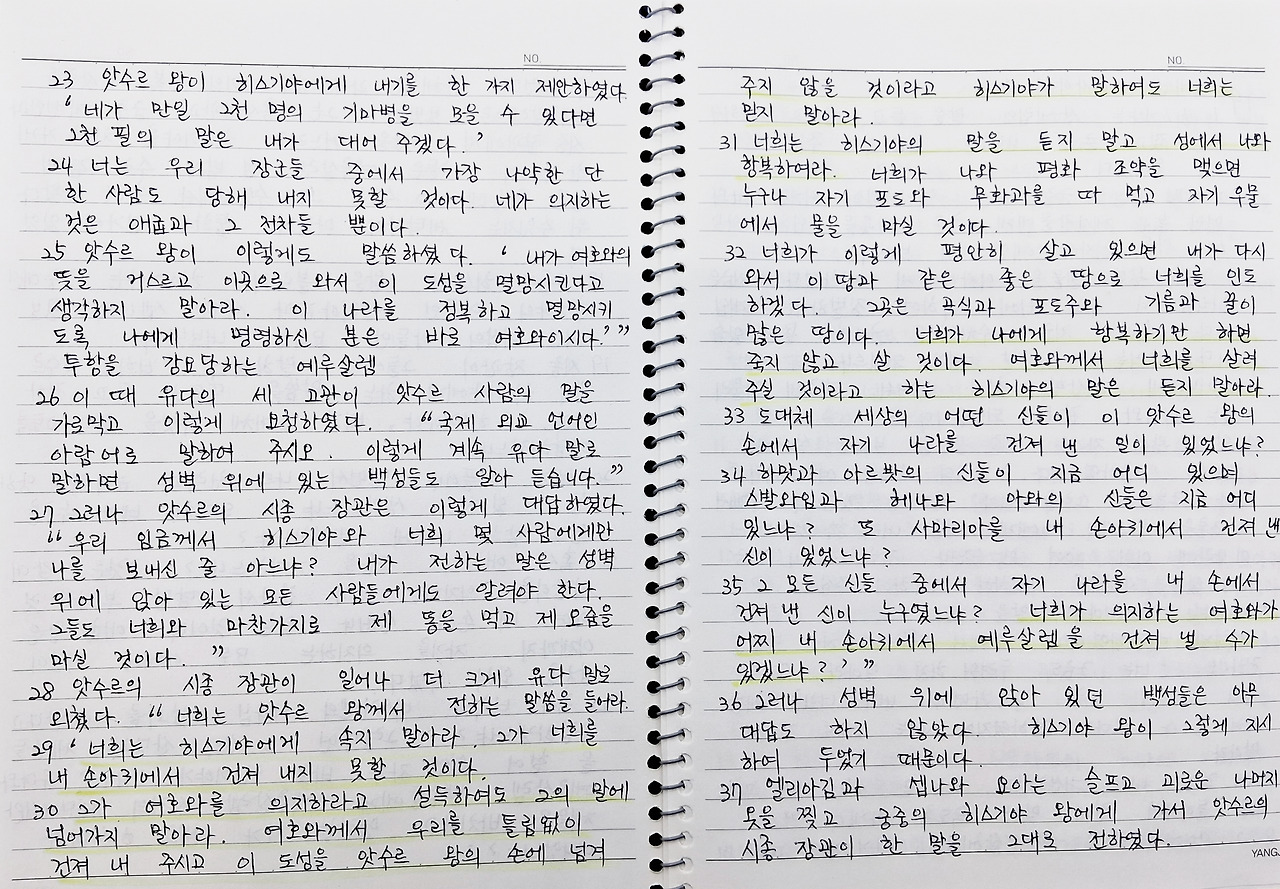 NO.
23 앗수르 왕이 히스기야에게 내기를 한 가지 제안하였다.
‘네가 만일 2천 명의 기마병을 모을 수 있다면
2천 필의 말은 내가 대어 주겠다.’
24 너는 우리 장군들 중에서 가장 나약한 단
한 사람도 당해 내지 못할 것이다. 네가 의지하는
것은 애굽과 그 전차들 뿐이다.
25 앗수르 왕이 이렇게도 말씀하셨다. ‘내가 여호와의
뜻을 거스르고 이곳으로 와서 이 도성을 멸망시킨다고
생각하지 말아라. 이 나라를 정복하고 멸망시키
도록 나에게 명령하신 분은 바로 여호와이시다.’”
투항을 강요당하는 예루살렘
26 이 때 유다의 세 고관이 앗수르 사람의 말을
가로막고 이렇게 요청하였다. “국제 외교 언어인
아람어로 말하여 주시오. 이렇게 계속 유다 말로
말하면 성벽 위에 있는 백성들도 알아 듣습니다.”
27 그러나 앗수르의 시종 장관은 이렇게 대답하였다.
“우리 임금께서 히스기야와 너희 몇 사람에게만
나를 보내신 줄 아느냐? 내가 전하는 말은 성벽
위에 앉아 있는 모든 사람들에게도 알려야 한다.
그들도 너희와 마찬가지로 제 똥을 먹고 제 오줌을
마실 것이다.”
28 앗수르의 시종 장관이 일어나 더 크게 유다 말로
외쳤다. “너희는 앗수르 왕께서 전하는 말씀을 들어라.
29 ‘너희는 히스기야에게 속지 말아라. 그가 너희를
내 손아귀에서 건져 내지 못할 것이다.
30 그가 여호와를 의지하라고 설득하여도 그의 말에
넘어가지 말아라. 여호와께서 우리를 틀림없이
건져 내 주시고 이 도성을 앗수르 왕의 손에 넘겨
NO.
주지 않을 것이라고 히스기야가 말하여도 너희는
믿지 말아라.
31 너희는 히스기야의 말을 듣지 말고 성에서 나와
항복하여라. 너희가 나와 평화 조약을 맺으면
누구나 자기 포도와 무화과를 따 먹고 자기 우물
에서 물을 마실 것이다.
32 너희가 이렇게 평안히 살고 있으면 내가 다시
와서 이 땅과 같은 좋은 땅으로 너희를 인도
하겠다. 그곳은 곡식과 포도주와 기름과 꿀이
많은 땅이다. 너희가 나에게 항복하기만 하면
죽지 않고 살 것이다. 여호와께서 너희를 살려
주실 것이라고 하는 히스기야의 말은 듣지 말아라.
33 도대체 세상의 어떤 신들이 이 앗수르 왕의
손에서 자기 나라를 건져 낸 일이 있었느냐?
34 하맛과 아르밧의 신들이 지금 어디 있으며
스발와임과 헤나와 아와의 신들은 지금 어디
있느냐? 또 사마리아를 내 손아귀에서 건져 낸
신이 있었느냐?
35 그 모든 신들 중에서 자기 나라를 내 손에서
건져 낸 신이 누구였느냐? 너희가 의지하는 여호와가
어찌 내 손아귀에서 예루살렘을 건져 낼 수가
있겠느냐?’”
36 그러나 성벽 위에 앉아 있던 백성들은 아무
대답도 하지 않았다. 히스기야 왕이 그렇게 지시
하여 두었기 때문이다.
37 엘리아김과 셉나와 요아는 슬프고 괴로운 나머지
옷을 찢고 궁중의 히스기야 왕에게 가서 앗수르의
시종 장관이 한 말을 그대로 전하였다.
YANG.